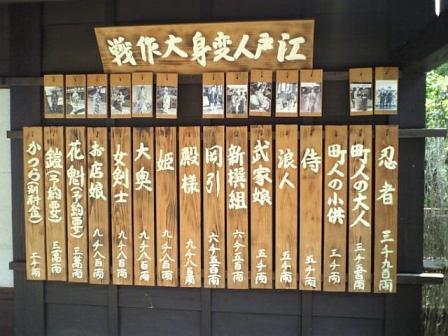 江戸人変身大作戦
忍者 三千九百両
町人の大人 三千五百両
町人の小供 三千両
侍 五千両
浪人 五千両
武家娘 五千両
新撰組 六千五百両
岡引 六千五百両
殿様 九千八百両
姫 九千八百両
大奥 九千八百両
女剣士 九千八百両
お店娘 九千八百両
花魁(予約要) 三萬両
鎧(予約要) 三萬両
かつら(別料金) 二千両